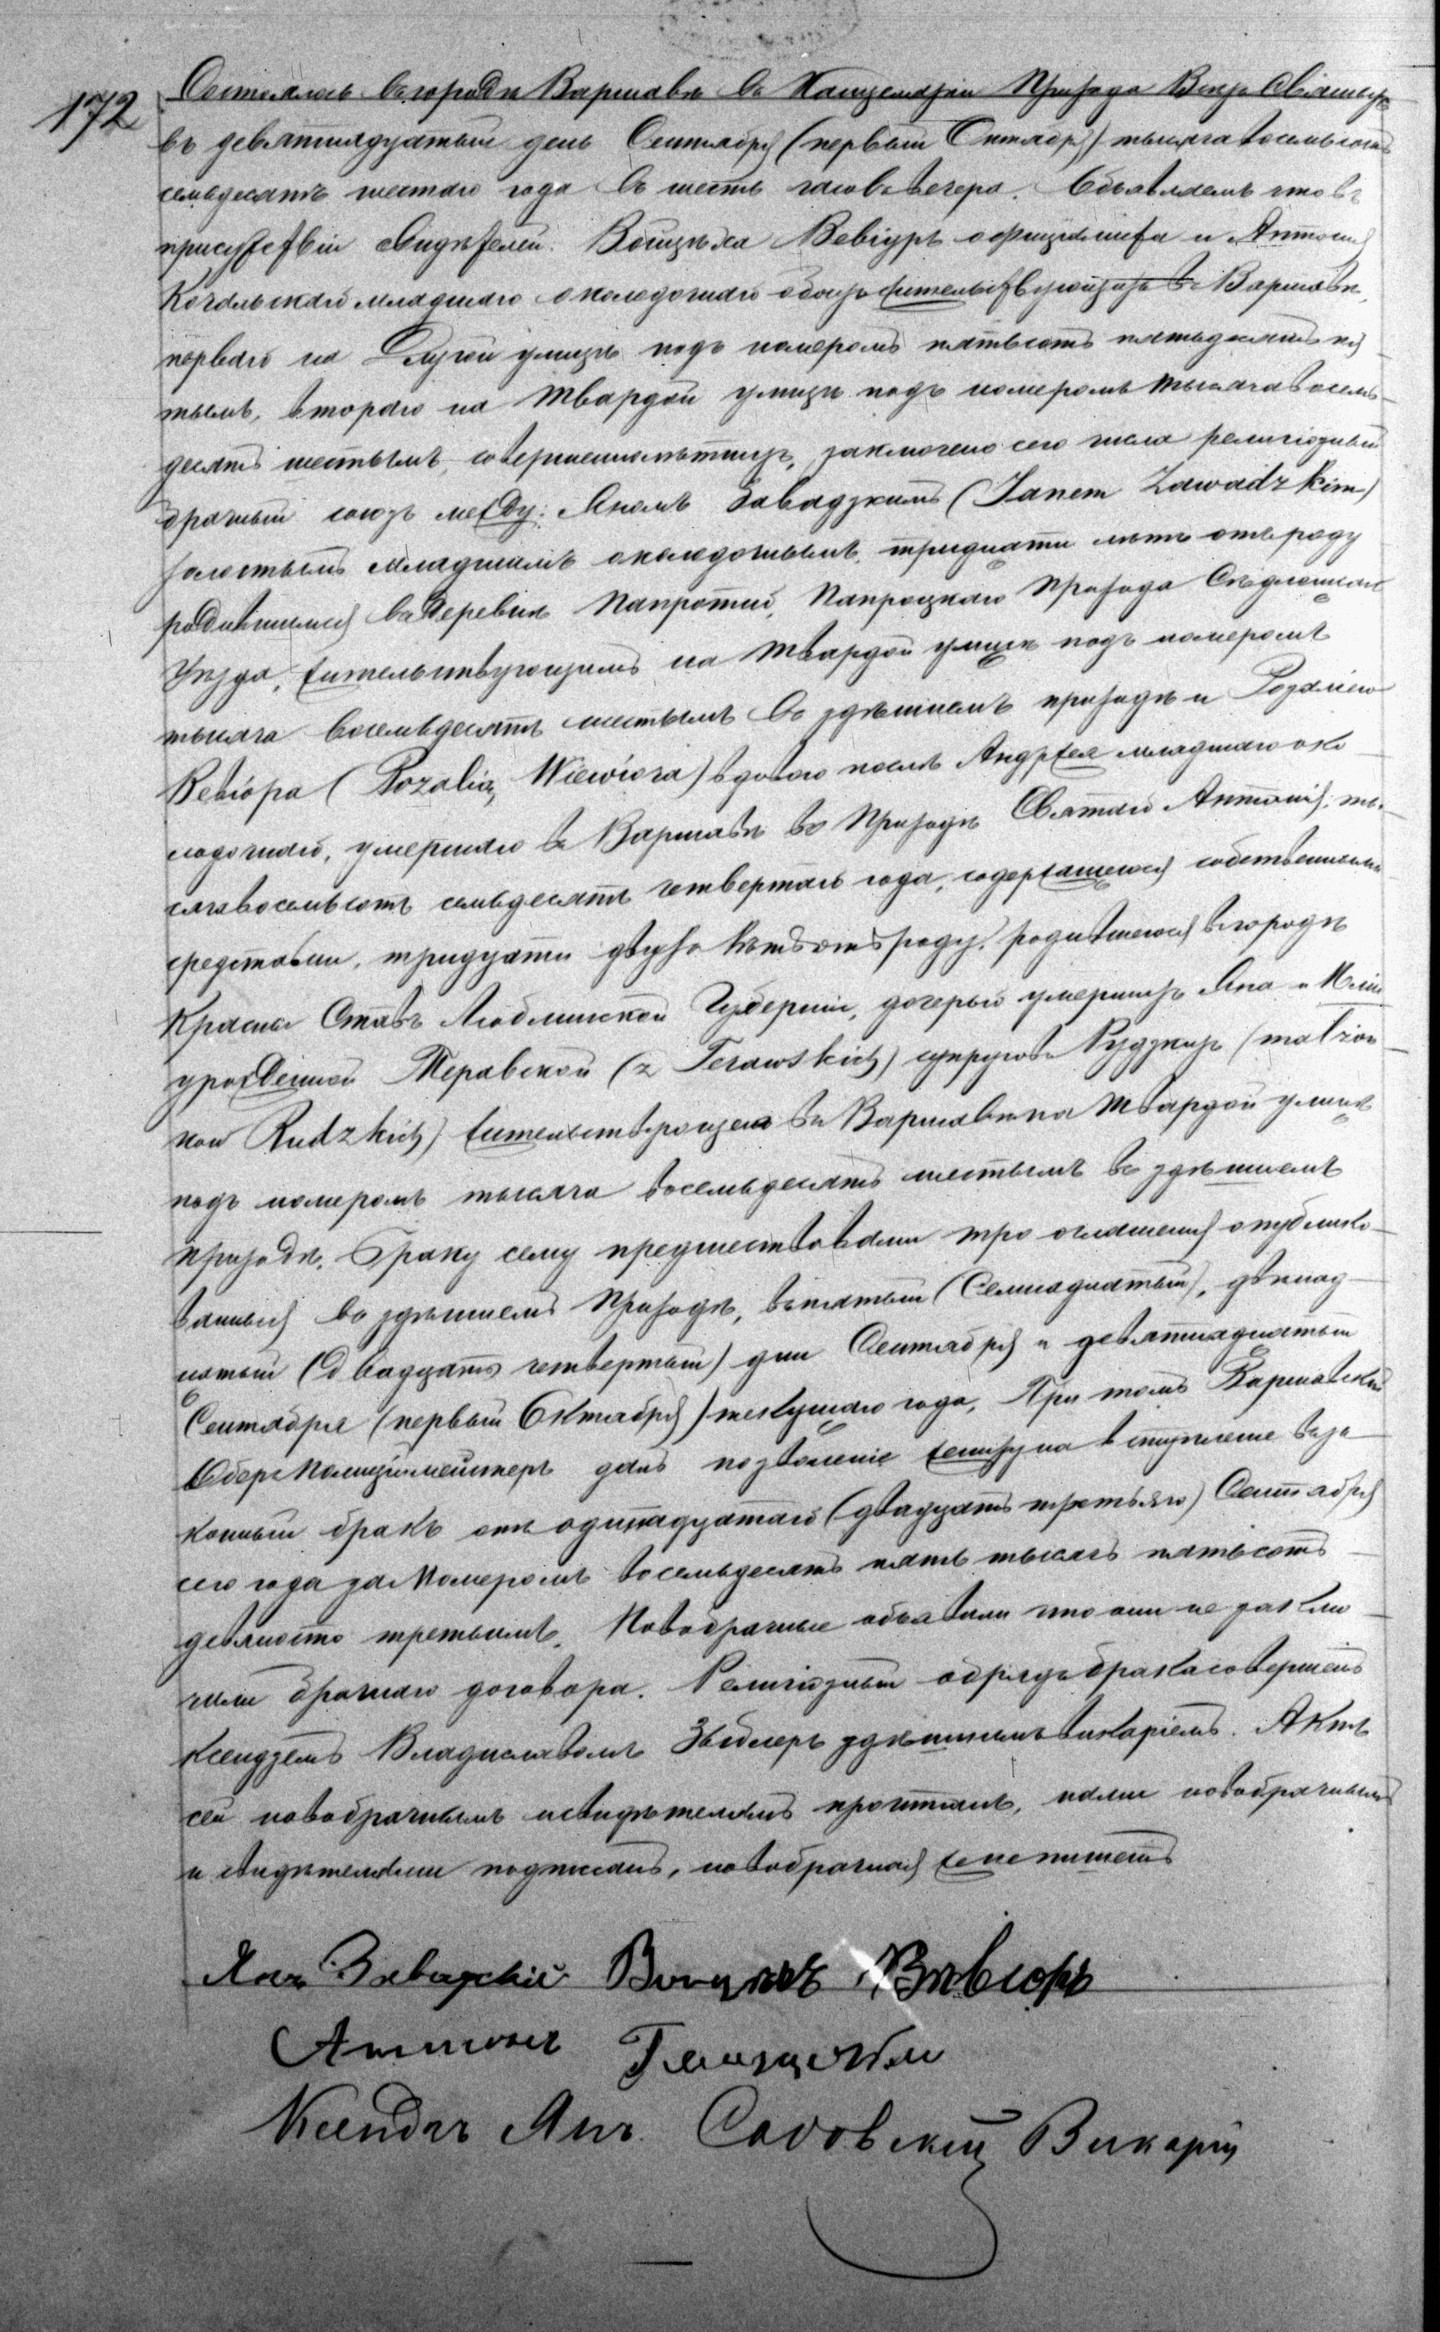 172
Состоялось въ городѣ Варшавѣ въ Канцеляріи Прихода Всѣхъ Святыхъ
въ девятнадцатый день Сентября (первый Октября) тысяча восемьсотъ
семьдесятъ шестаго года въ шесть часовъ вечера. Объявляемъ что въ
присутствіи свидѣтелей. Войцѣха Вевіуръ оффиціалиста и Антонія
младшаго околодочнаго обоихъ жительствующихъ въ Варшавѣ,
перваго на Долгой улицѣ подъ номеромъ пятьсотъ пятьдесятъ пя
тымъ, втораго на Твардой улицѣ подъ номеромъ тысяча восемь
десятъ шестымъ, совершеннолѣтнихъ, заключенъ сего числа религіозный
брачный союзъ между: Яномъ Завадзкимъ (Janem Zawadzkim)
холостымъ младшимъ околодочнымъ, тридцати лѣтъ отъ роду
родившимся въ деревнѣ Папротни, Папроцкаго Прихода Сѣдлецкаго
Уѣзда, жительствующимъ на Твардой улицѣ подъ номеромъ
тысяча восемьдесятъ шестымъ въ здѣшнемъ приходѣ и Розаліею
Вевіора (Rozalią Wiewiora) вдовою послѣ Андрея младшаго око
лодочнаго, умершаго въ Варшавѣ въ Приходѣ Святаго Антонія; ты
сяча восемьсотъ семьдесятъ четвертаго года, содержащеюся собственными
средствами, тридцати двухъ лѣтъ отъ роду, родившеюся въ городѣ
Красны Ставъ Люблинской Губерніи, дочерью умершихъ Яна и
урожденной Теравской (z Terawskich) супруговъ Рудзкихъ (małżon
ków Rudzkich) жительствующею въ Варшавѣ на Твардой улицѣ
подъ номеромъ тысяча восемьдесятъ шестымъ въ здѣшнемъ
приходѣ. Браку сему предшествовали три оглашенія опублико
ванныя въ здѣшнемъ Приходѣ, въ пятый (Семнадцатый), двѣнад
цатый (Двадцать четвертый) дни Сентября и девятнадцатый
Сентября (первый Октября) текущаго года, При томъ Варшавскій
Оберъ Полиціймейстеръ далъ позволеніе жениху на вступленіе въ за
конный бракъ отъ одиннадцатаго (двадцать третьяго) Сентября
сего года за Номеромъ восемьдесятъ пять тысячъ пятьсотъ
девяносто третьимъ. Новобрачные объявили что они не заклю
чили брачнаго договора. Религіозный обрядъ брака совершенъ
ксендземъ Владиславомъ здѣшнимъ викаріемъ. Актъ
сей новобрачнымъ и свидѣтелямъ прочитанъ, нами новобрачнымъ
и свидѣтелями подписанъ, новобрачная же не пишетъ
Янъ Завадзкій Войцѣхъ Вѣвіоръ
Антонъ
Ксендзъ Янъ Садовскій Викарій